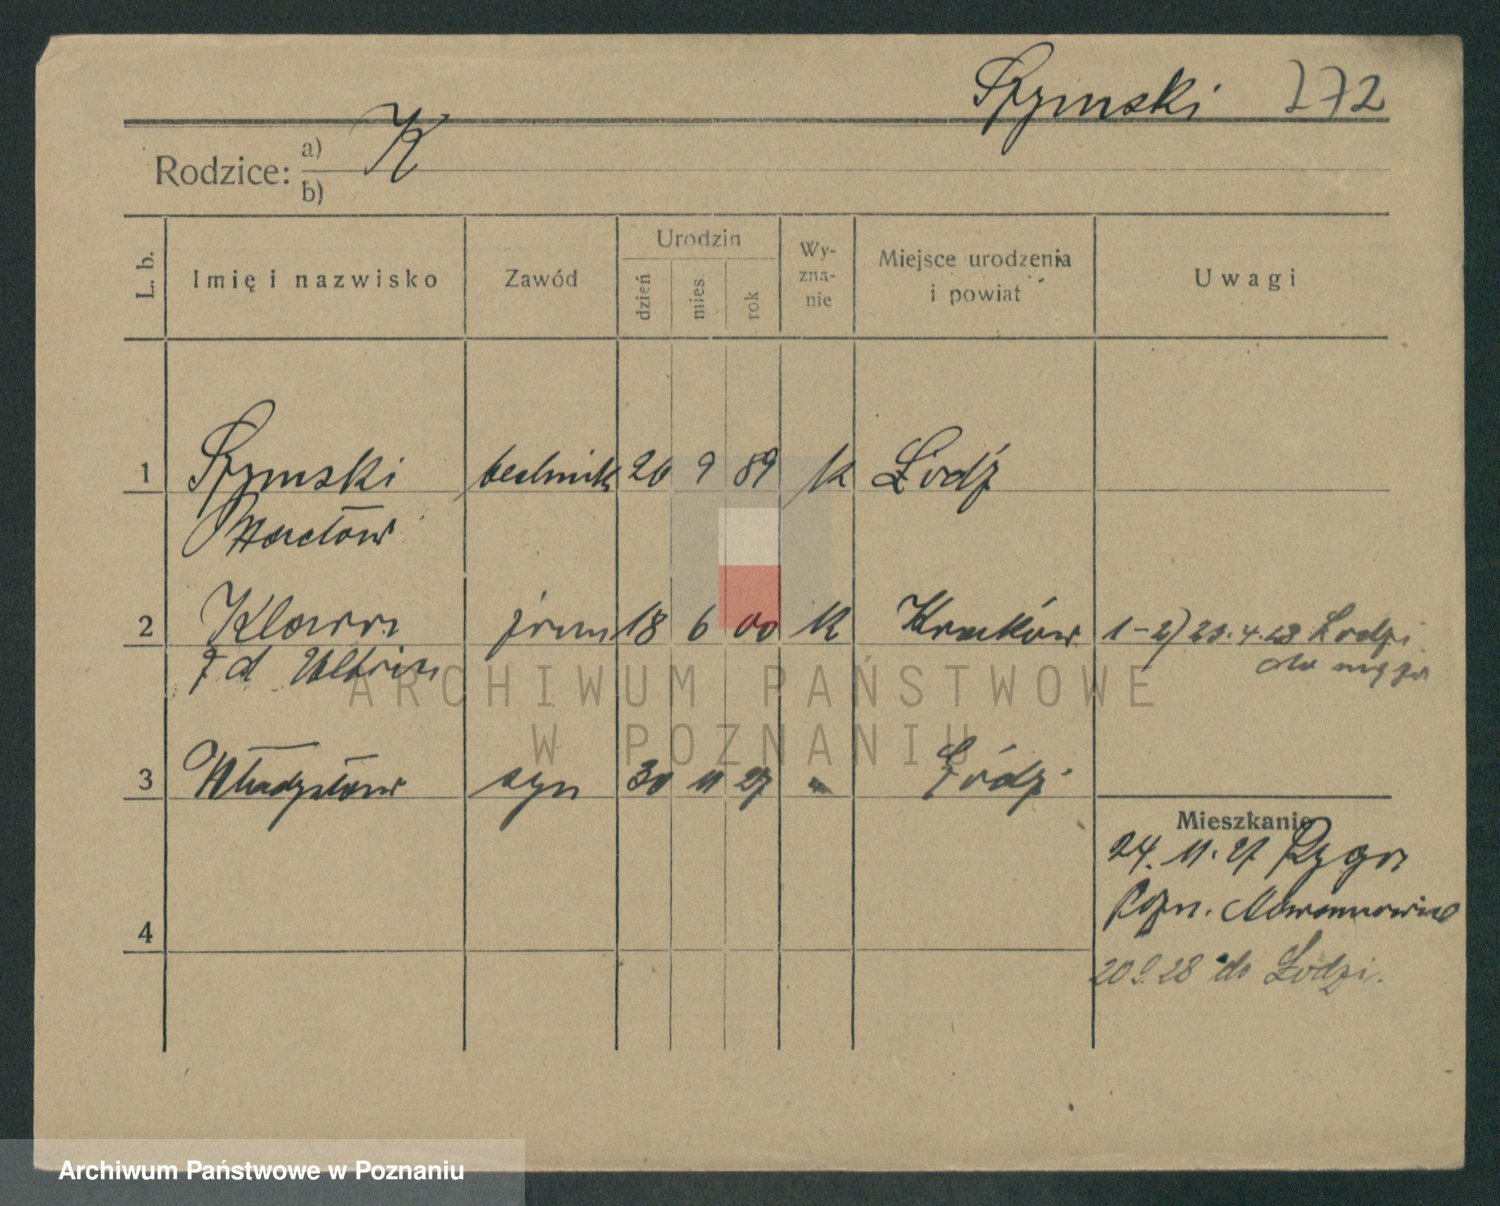 Szymski 272
Rodzice: a) K
b)
L. b. Imię i nazwisko Zawód Urodzin dzień mies. rok Wy-zna-nie Miejsce urodzenia i powiat Uwagi
1 Szymski technik 20 9 89 k Łódź
Wacław
2 Klara żona 18 6 00 k Kraków 1-2) 23.4.28 Łodzi
z d
3 Władysław syn 30 11 27 Łódź
Mieszkanie
24. 11. 27 Ryga
Pozn.
4
20 9. 28 do Łodzi.
ARCHIWUM PAŃSTWOWE
W POZNANIU
Archiwum Państwowe w Poznaniu